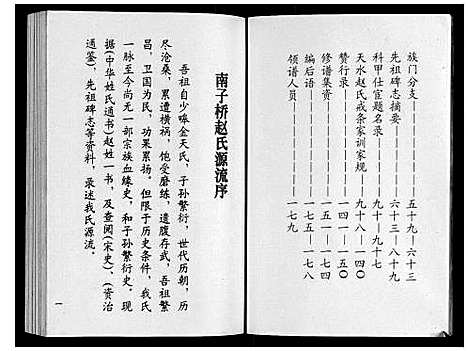 族门分支——五十九—六十三
先祖碑志摘要——六十三—八十九
科甲仕宦题名录——九十—九十七
天水赵氏戒条家训家规——九十八—一四〇
赞行录——一四一—一五〇
修谱集资——一五一—一七四
编后语——一七五—一七八
领谱人员——一七九
南子桥赵氏源流序
吾祖自少嗥金天氏，子孙繁衍，世代历朝，历
尽沧桑，累遭横祸，饱受磨练，遗腹存武，吾祖繁
昌，卫国为民，功求累扬。但限于历史条件，我氏
一脉至今尚无一部宗族血缘史，和子孙繁衍史。现
据(中华姓氏通书)赵姓一书，及查阅(宋史)、(资治
通鉴)，先祖碑志等资料，录述我氏源流。
一